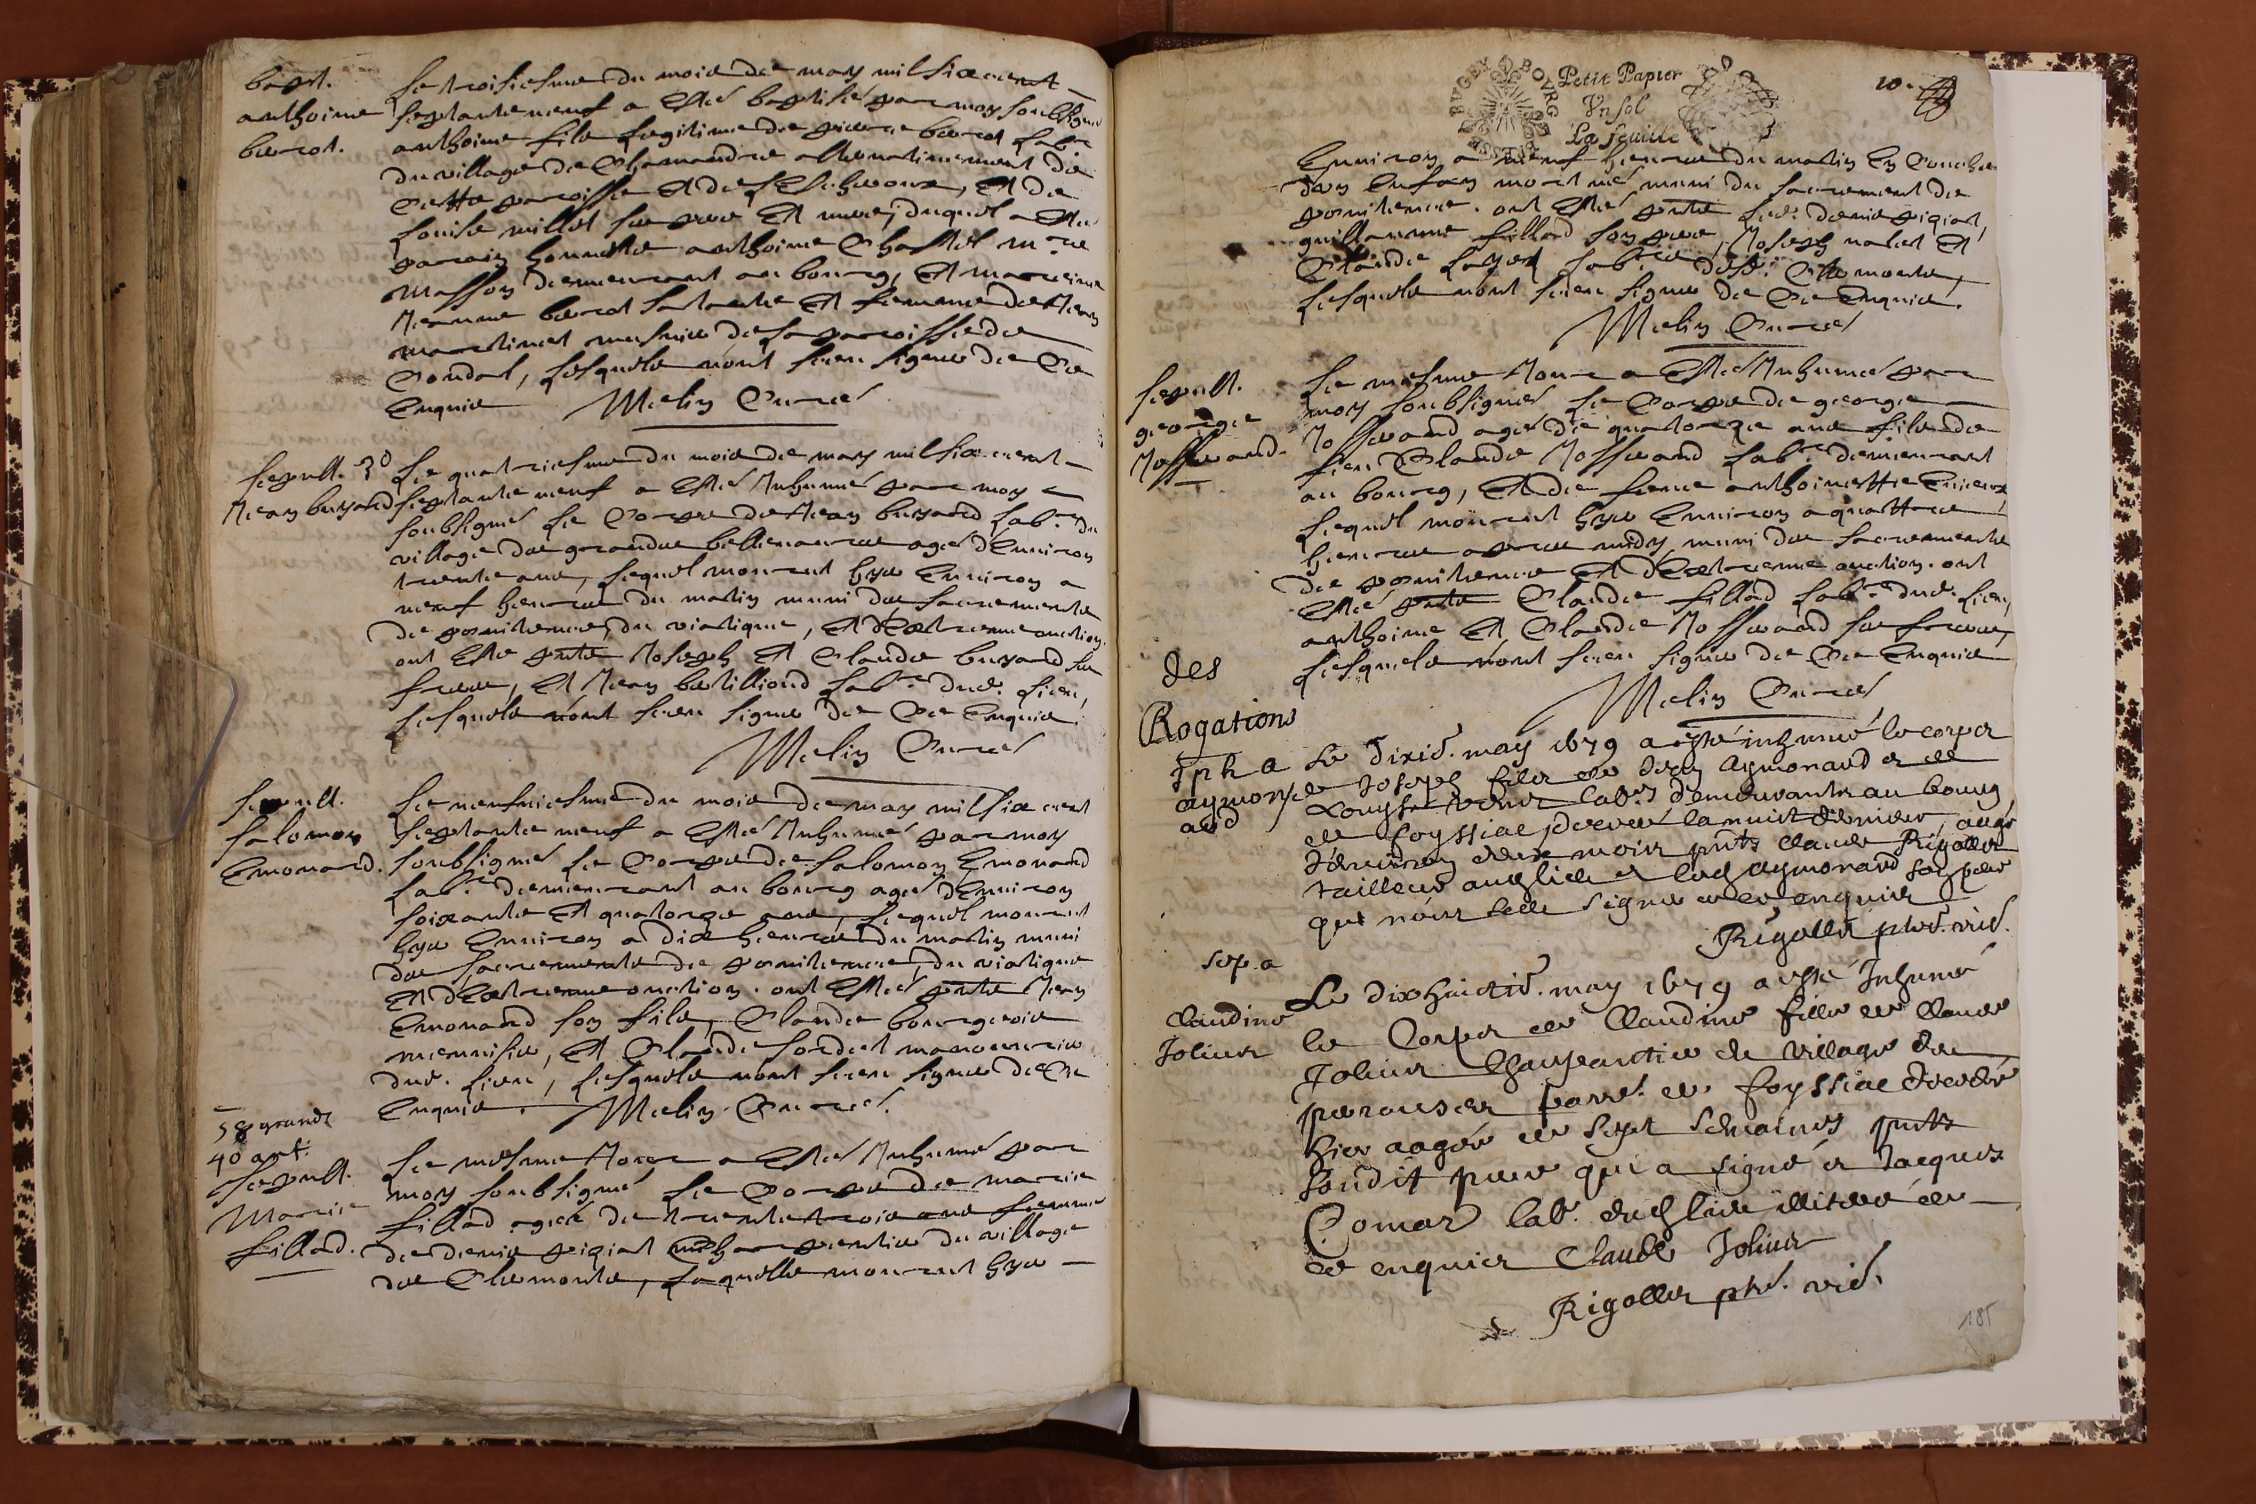 bapt.
anthoine
berrot.
Le troisiesme du mois de may mil six cent
septante neuf a esté baptisé par moy soubsigné
anthoine fils legitime de pierre berrot labr.
du village de Chamandre alternativement de
cette paroisse et de , et de
Louise millet ses pere et mere, duquel a esté
parrain honneste anthoine Chastel mre
masson demeurant au bourg, et marreine
Jeanne berrot sa tante et femme de Jean
martinet musnier de la paroisse de
Condal, lesquels n'ont sceu signer de ce
enquis Melin Curé
sepult.
Jean buyard
Le quatriesme du mois de may mil six cent
septante neuf a esté Inhumé par moy
soubsigné le Corps de Jean buyard labr. du
village de grandes bellenances agé d'environ
trente ans, lequel mourut hyer environ a
neuf heures du matin muni des sacrements
de penitence, du viatique, et d'extreme onction.
ont esté pnts Joseph et Claude buyard ses
freres, et Jean labr. dud. lieu,
lesquels n'ont sceu signer de ce enquis.
Melin Curé
sepult.
salomon
Emonard.
Le neufviesme du mois de may mil six cent
septante neuf a esté Inhumé par moy
soubsigné le Corps de salomon Emonard
labr. demeurant au bourg agé d'environ
soixante et quatorze ans, lequel mourut
hyer environ a dix heures du matin muni
des sacrements de penitence, du viatique
et d'extreme onction. ont esté pnts Jean
Emonard son fils, Claude bourgeois
menuisier, et Claude sordet manouvrier
dud. lieu, lesquels n'ont sceu signer de ce
enquis. Melin Curé.
58 grands
40 ant.
sepult.
Marie
fillod.
Le mesme Jour a esté Inhumé par
moy soubsigné le Corps de marie
fillod agée de trente trois ans femme
de denis pigiat mre charpentier du village
de Clemonts, laquelle mourut hyer
BVGEY BOVRG BRESSE
Petit Papier
Vn sol
La feuille
10.
Environ a neuf heures du matin En Couche
d'un Enfan mort né muni du sacrement de
penitence. ont esté pnts led. denis pigiat,
guillaume fillod son pere, Joseph et
Claude labrs. dud. Clemonts,
lesquels n'ont sceu signer de ce enquis.
Melin Curé
sepult.
george
Josserand.
Le mesme Jour a esté Inhumé par
moy soubsigné le Corps de george
Josserand agé de quatorze ans fils de
feu Claude Josserand labr. demeurant
au bourg, et de feue anthoinette
lequel mourut hyer environ a quattre
heures apres midy muni des sacrements
de penitence et d'extreme onction. ont
esté pnts Claude fillod labr. dud. lieu,
anthoine et Claude Josserand ses freres,
lesquels n'ont sceu signer de ce enquis
Melin Curé
des
Rogations
sp. a
aymon
ard
Le dixie. may 1679 a esté inhumé le corps
de Joseph fils de Jean Aymonard et de
Louyse labrs demeurants au bourg
de foyssiac, decedé la nuit derniere, aagé
d'environ deux mois pnts claude Rigollet
tailleur audlieu et led Aymonard son pere
qui n'ont sceu signer de ce enquis
Rigollet pbre. vic.
sep. a
Claudine
Jolivet
Le dixhuictie. may 1679 a esté Inhumé
le Corps de Claudine fille de Claude
Jolivet Charpentier du village des
perouses parre. de foyssiac decedée
hier aagée de sept semaines pnts
sondit pere qui a signé et Jacques
Comar labr. dudlieu illitéré de
ce enquier Claude Jolivet
Rigollet pbre. vic.
185